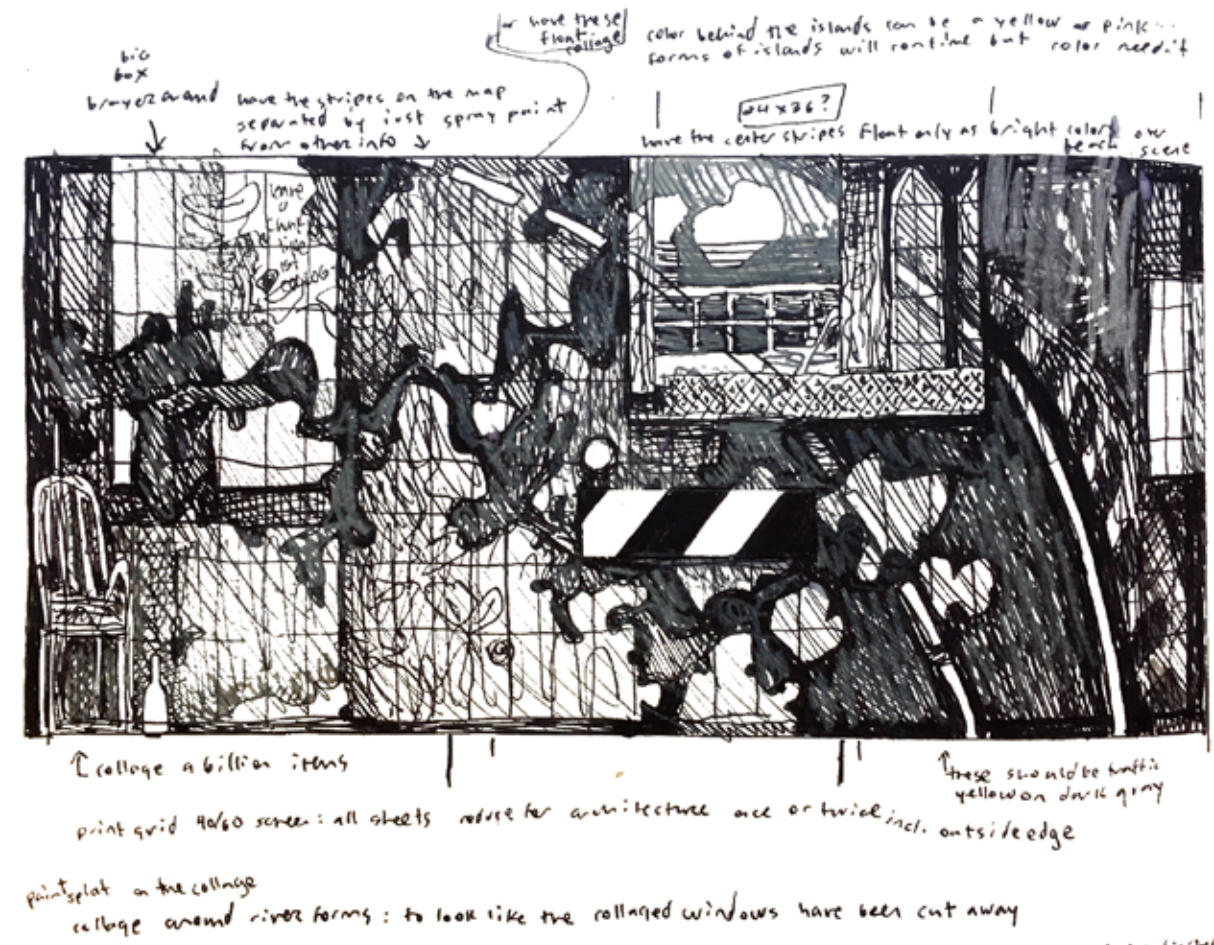 or have these
float
collage
color behind the islands can be a yellow or pink
forms of islands will continue but color needit
big
box
brayer around
have the stripes on the map
separated by just spray paint
from other info
24 x 36?
have the center stripes float only as bright colors over
beach scene
leave
a
collage a billion items
these should be traffic
yellow on dark gray
print grid 40/60 screen: all sheets reduce for architecture once or twice incl. outside edge
paint splat on the collage
collage around river forms: to look like the collaged windows have been cut away